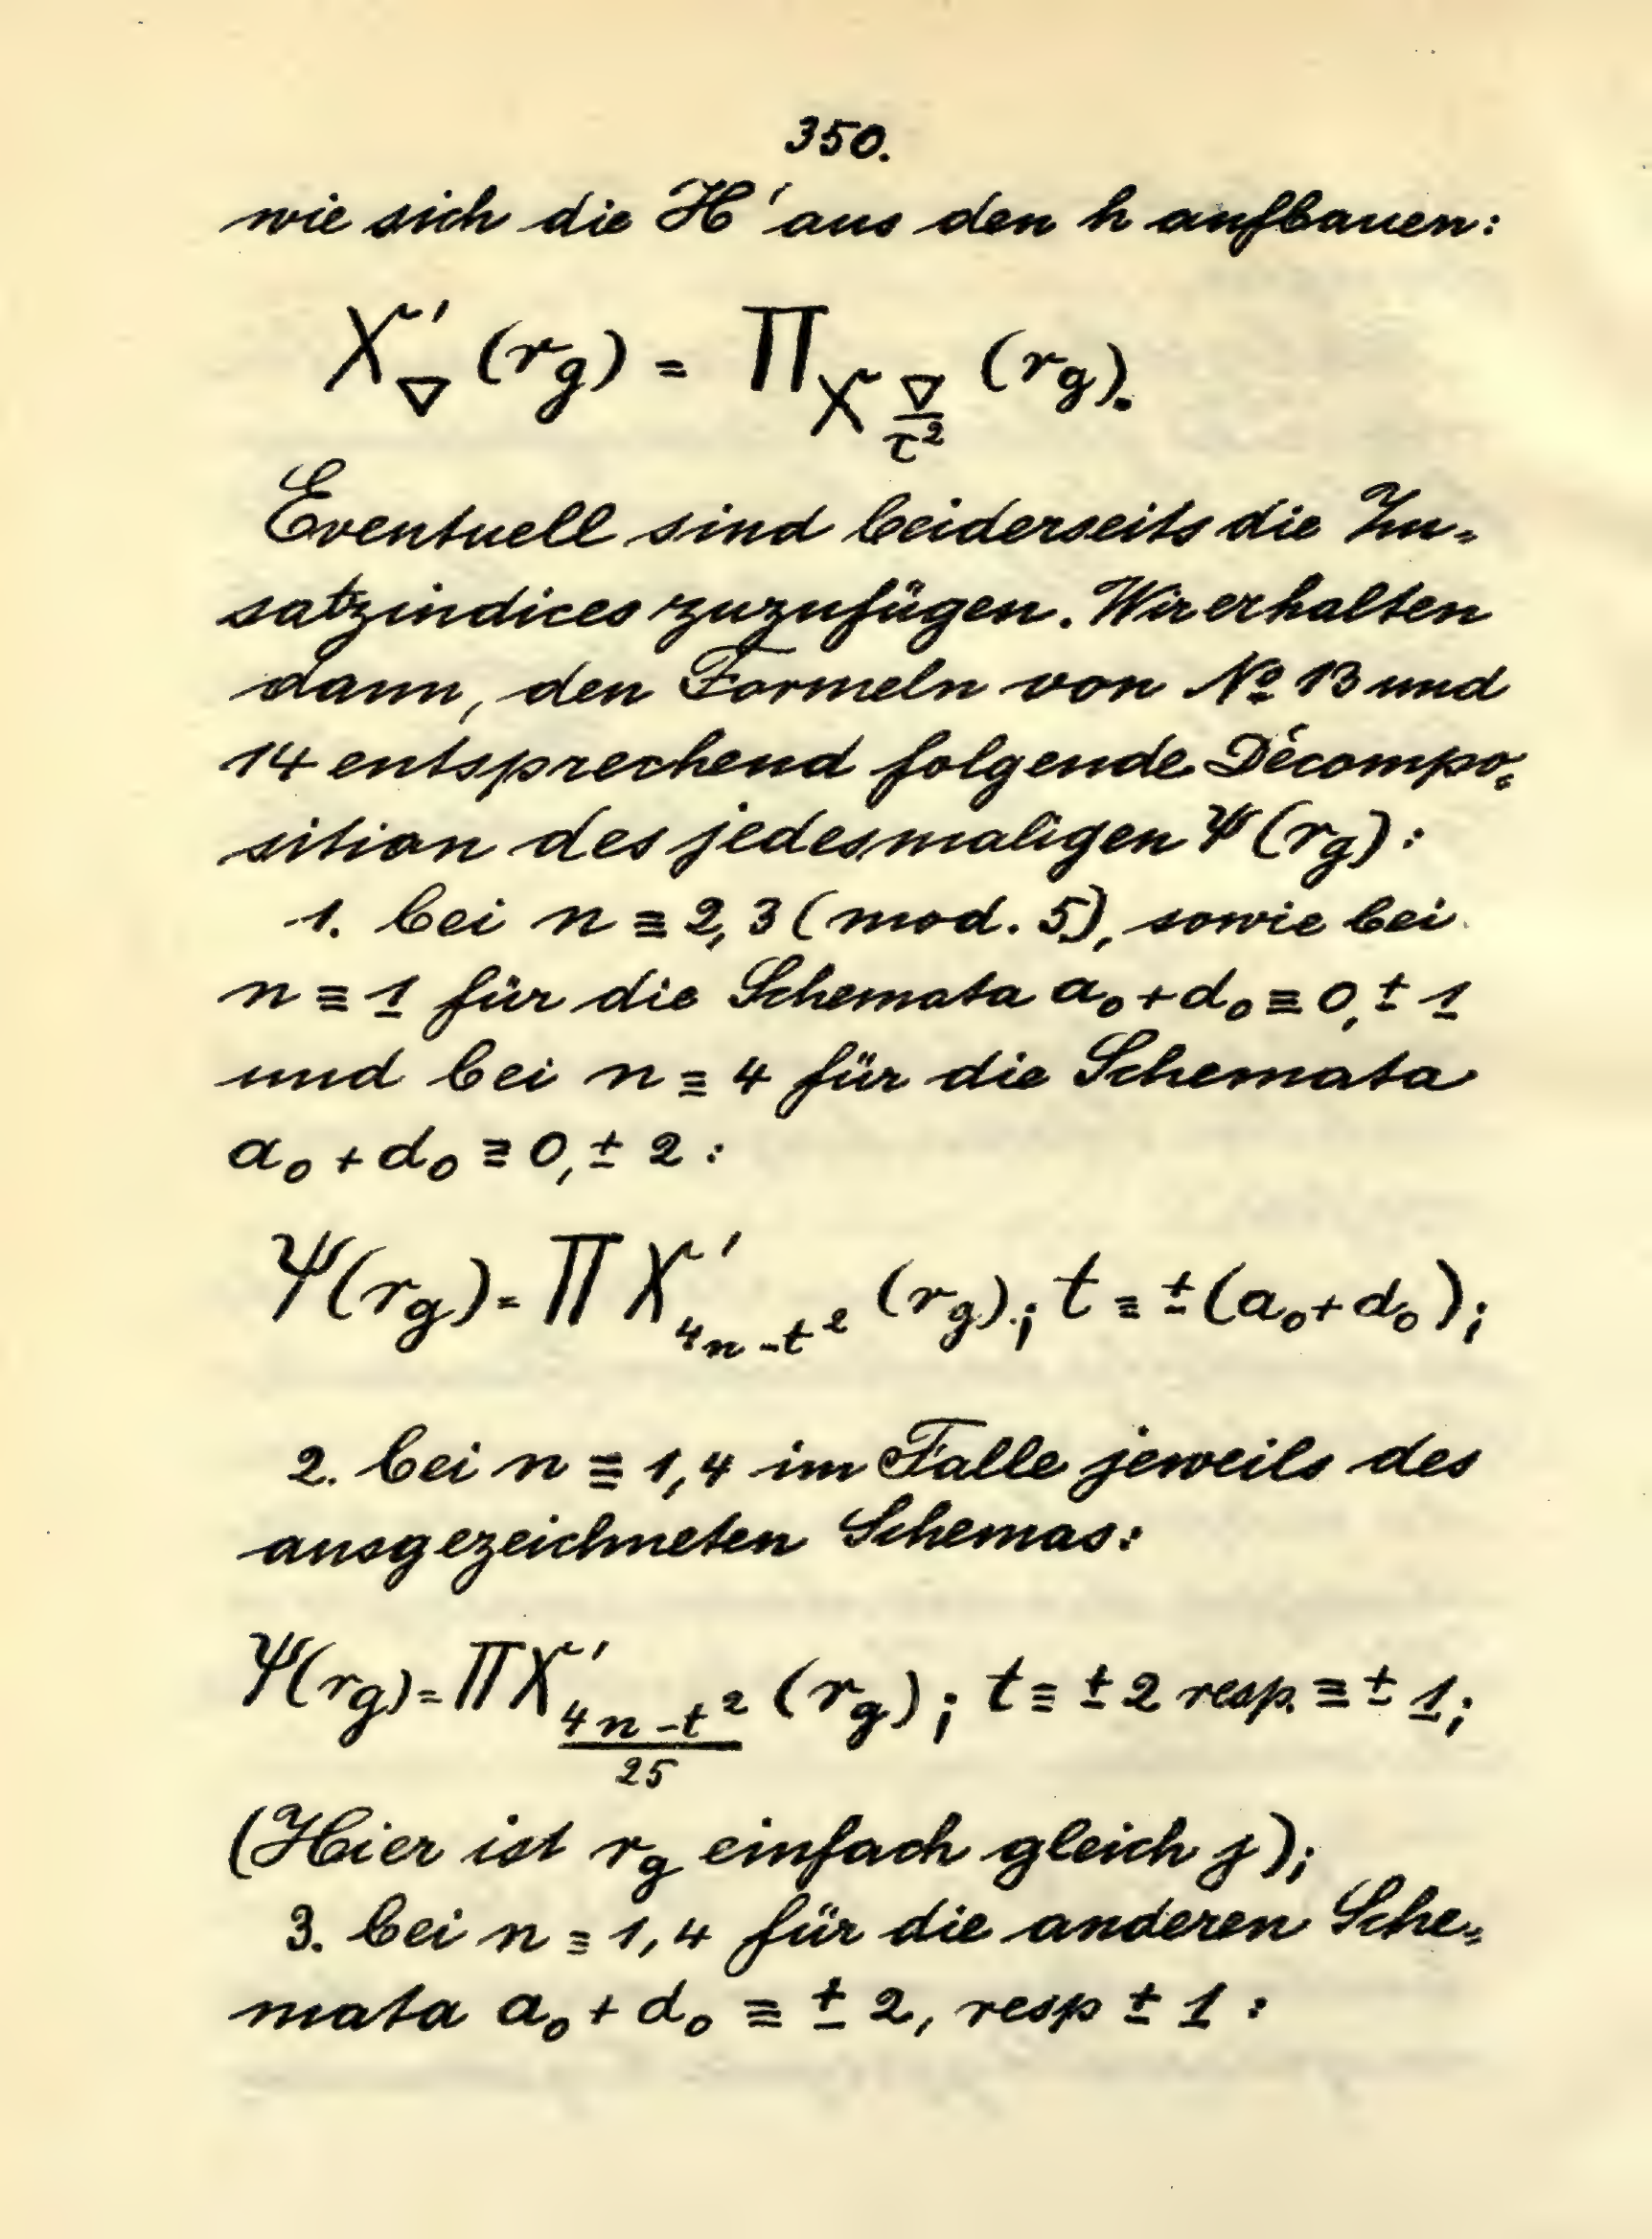 350.
wie sich die H' aus den h aufbauen:
X'_∇ (r_g) = Π X_{∇/τ²} (r_g).
Eventuell sind beiderseits die Zu-
satzindices zuzufügen. Wir erhalten
dann, den Formeln von No 13 und
14 entsprechend folgende Décompo-
sition des jedesmaligen Ψ(r_g):
1. bei n ≡ 2, 3 (mod. 5), sowie bei
n ≡ 1 für die Schemata a₀ + d₀ ≡ 0, ± 1
und bei n ≡ 4 für die Schemata
a₀ + d₀ ≡ 0, ± 2 :
Ψ(r_g) = Π X'_{4n-t²} (r_g); t ≡ ±(a₀+d₀);
2. bei n ≡ 1, 4 im Falle jeweils des
ausgezeichneten Schemas:
Ψ(r_g) = Π X'_{(4n-t²)/25} (r_g); t ≡ ± 2 resp. ≡ ± 1;
(Hier ist r_g einfach gleich j);
3. bei n ≡ 1, 4 für die anderen Sche-
mata a₀ + d₀ ≡ ± 2, resp ± 1 :